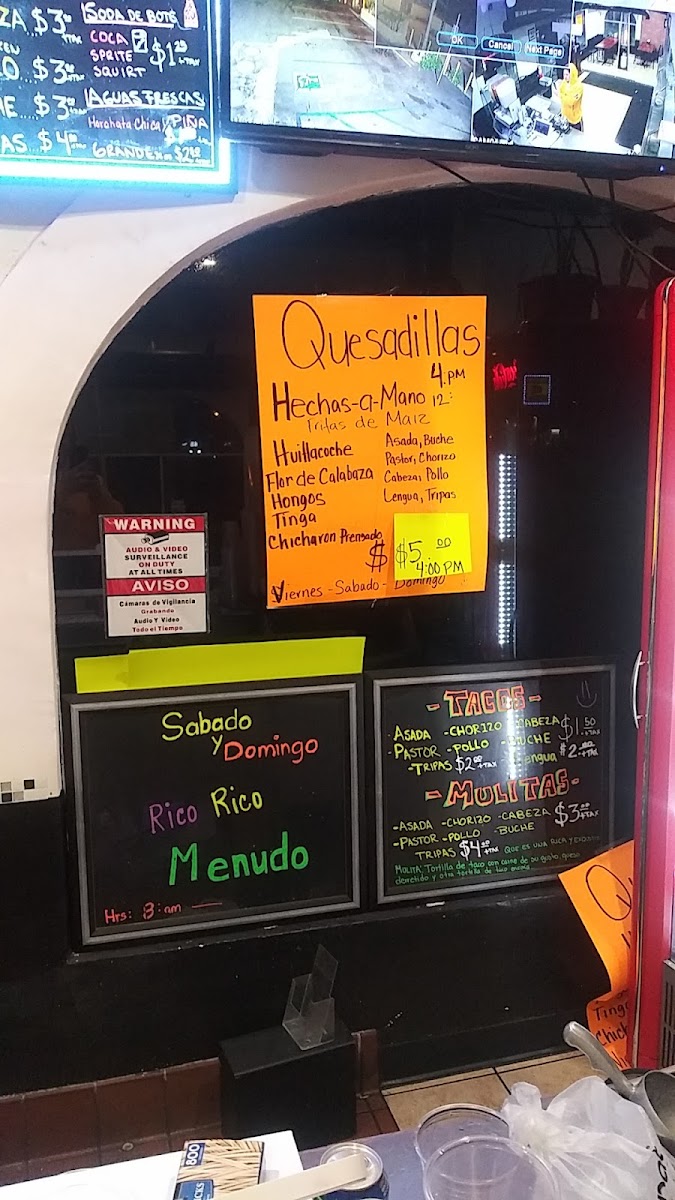 ZA $3 +TAX
O $3
E... $3
AS... $4
¡SODA DE BOTE
COCA
SPRITE
SQUIRT
$1 25 +TAX
¡AGUAS FRESCAS
Horchata Chica y PIÑA
GRANDE
OK Cancel Next Page
Quesadillas
4:PM
Hechas-a-Mano 12:
de Maiz
Huillacoche
Flor de Calabaza
Hongos
Tinga
Chicharon Prensado
Asada, Buche
Pastor, Chorizo
Cabeza, Pollo
Lengua, Tripas
$ $5 00
4:00 PM
Viernes - Sabado - Domingo
WARNING
AUDIO & VIDEO
SURVEILLANCE
ON DUTY
AT ALL TIMES
AVISO
Cámaras de Vigilancia
Grabando
Audio Y Video
Todo el Tiempo
Sabado
y Domingo
Rico Rico
Menudo
Hrs: 8:am
-TACOS-
ASADA -CHORIZO -CABEZA $1.50 +TAX
-PASTOR -POLLO -BUCHE
-TRIPAS $2 +TAX Lengua $2. +TAX
-MULITAS-
-ASADA -CHORIZO -CABEZA $3 +TAX
-PASTOR -POLLO -BUCHE
TRIPAS $4 +TAX QUE ES UNA RICA Y
MULITA. Tortilla de taco con carne de su gusto, queso
derretido y otra tortilla de
Q
Ting
Chich
800